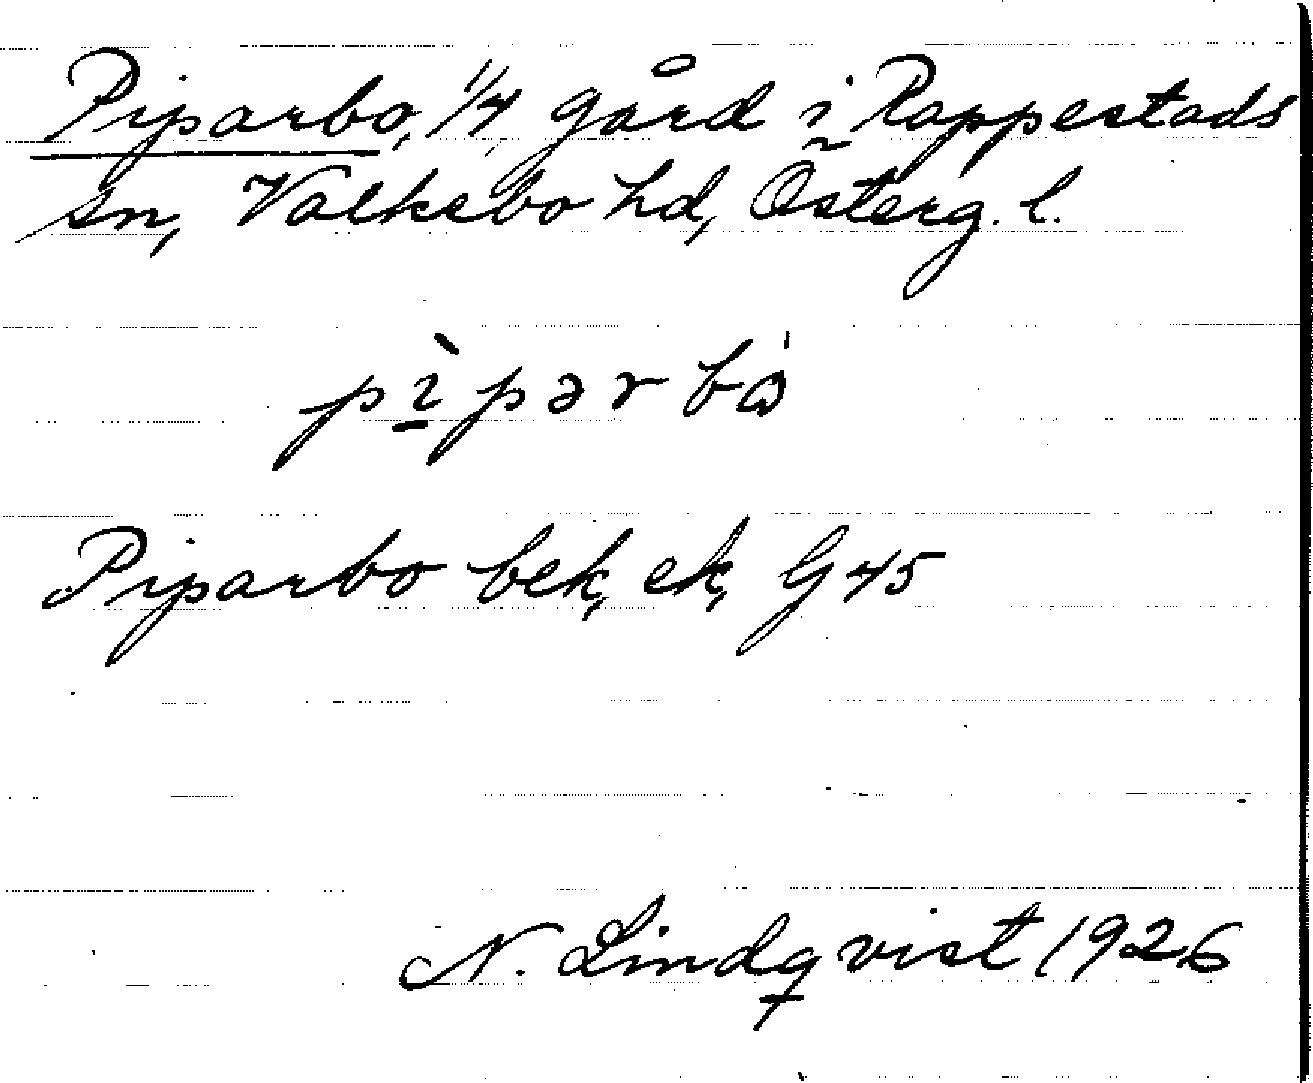 Piparbo, 1/4 gård i Rappestads
sn, Valkebo hd, Österg. l.
pìpərbò
Piparbo bek, ek, G 45
N. Lindqvist 1926